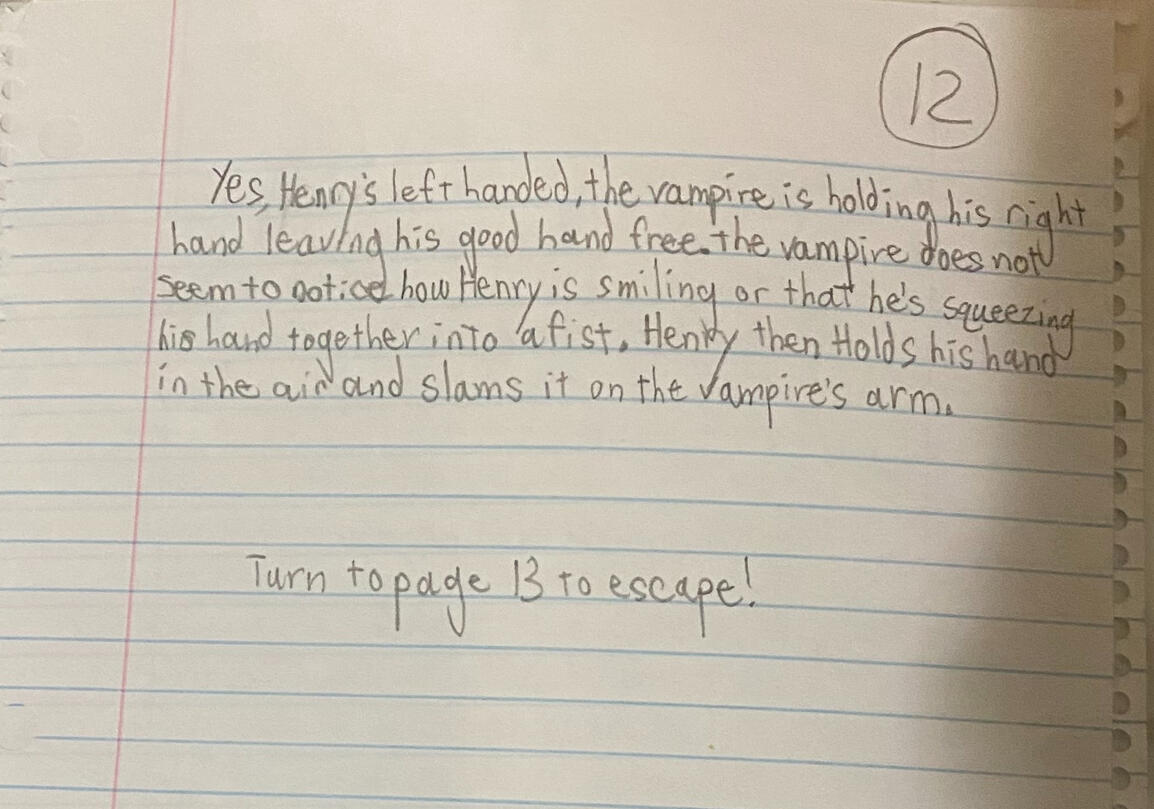 12
Yes, Henry's left handed, the vampire is holding his right
hand leaving his good hand free. the vampire does not
seem to notice how Henry is smiling or that he's squeezing
his hand together into a fist. Henry then Holds his hand
in the air and slams it on the Vampire's arm.
Turn to page 13 to escape!